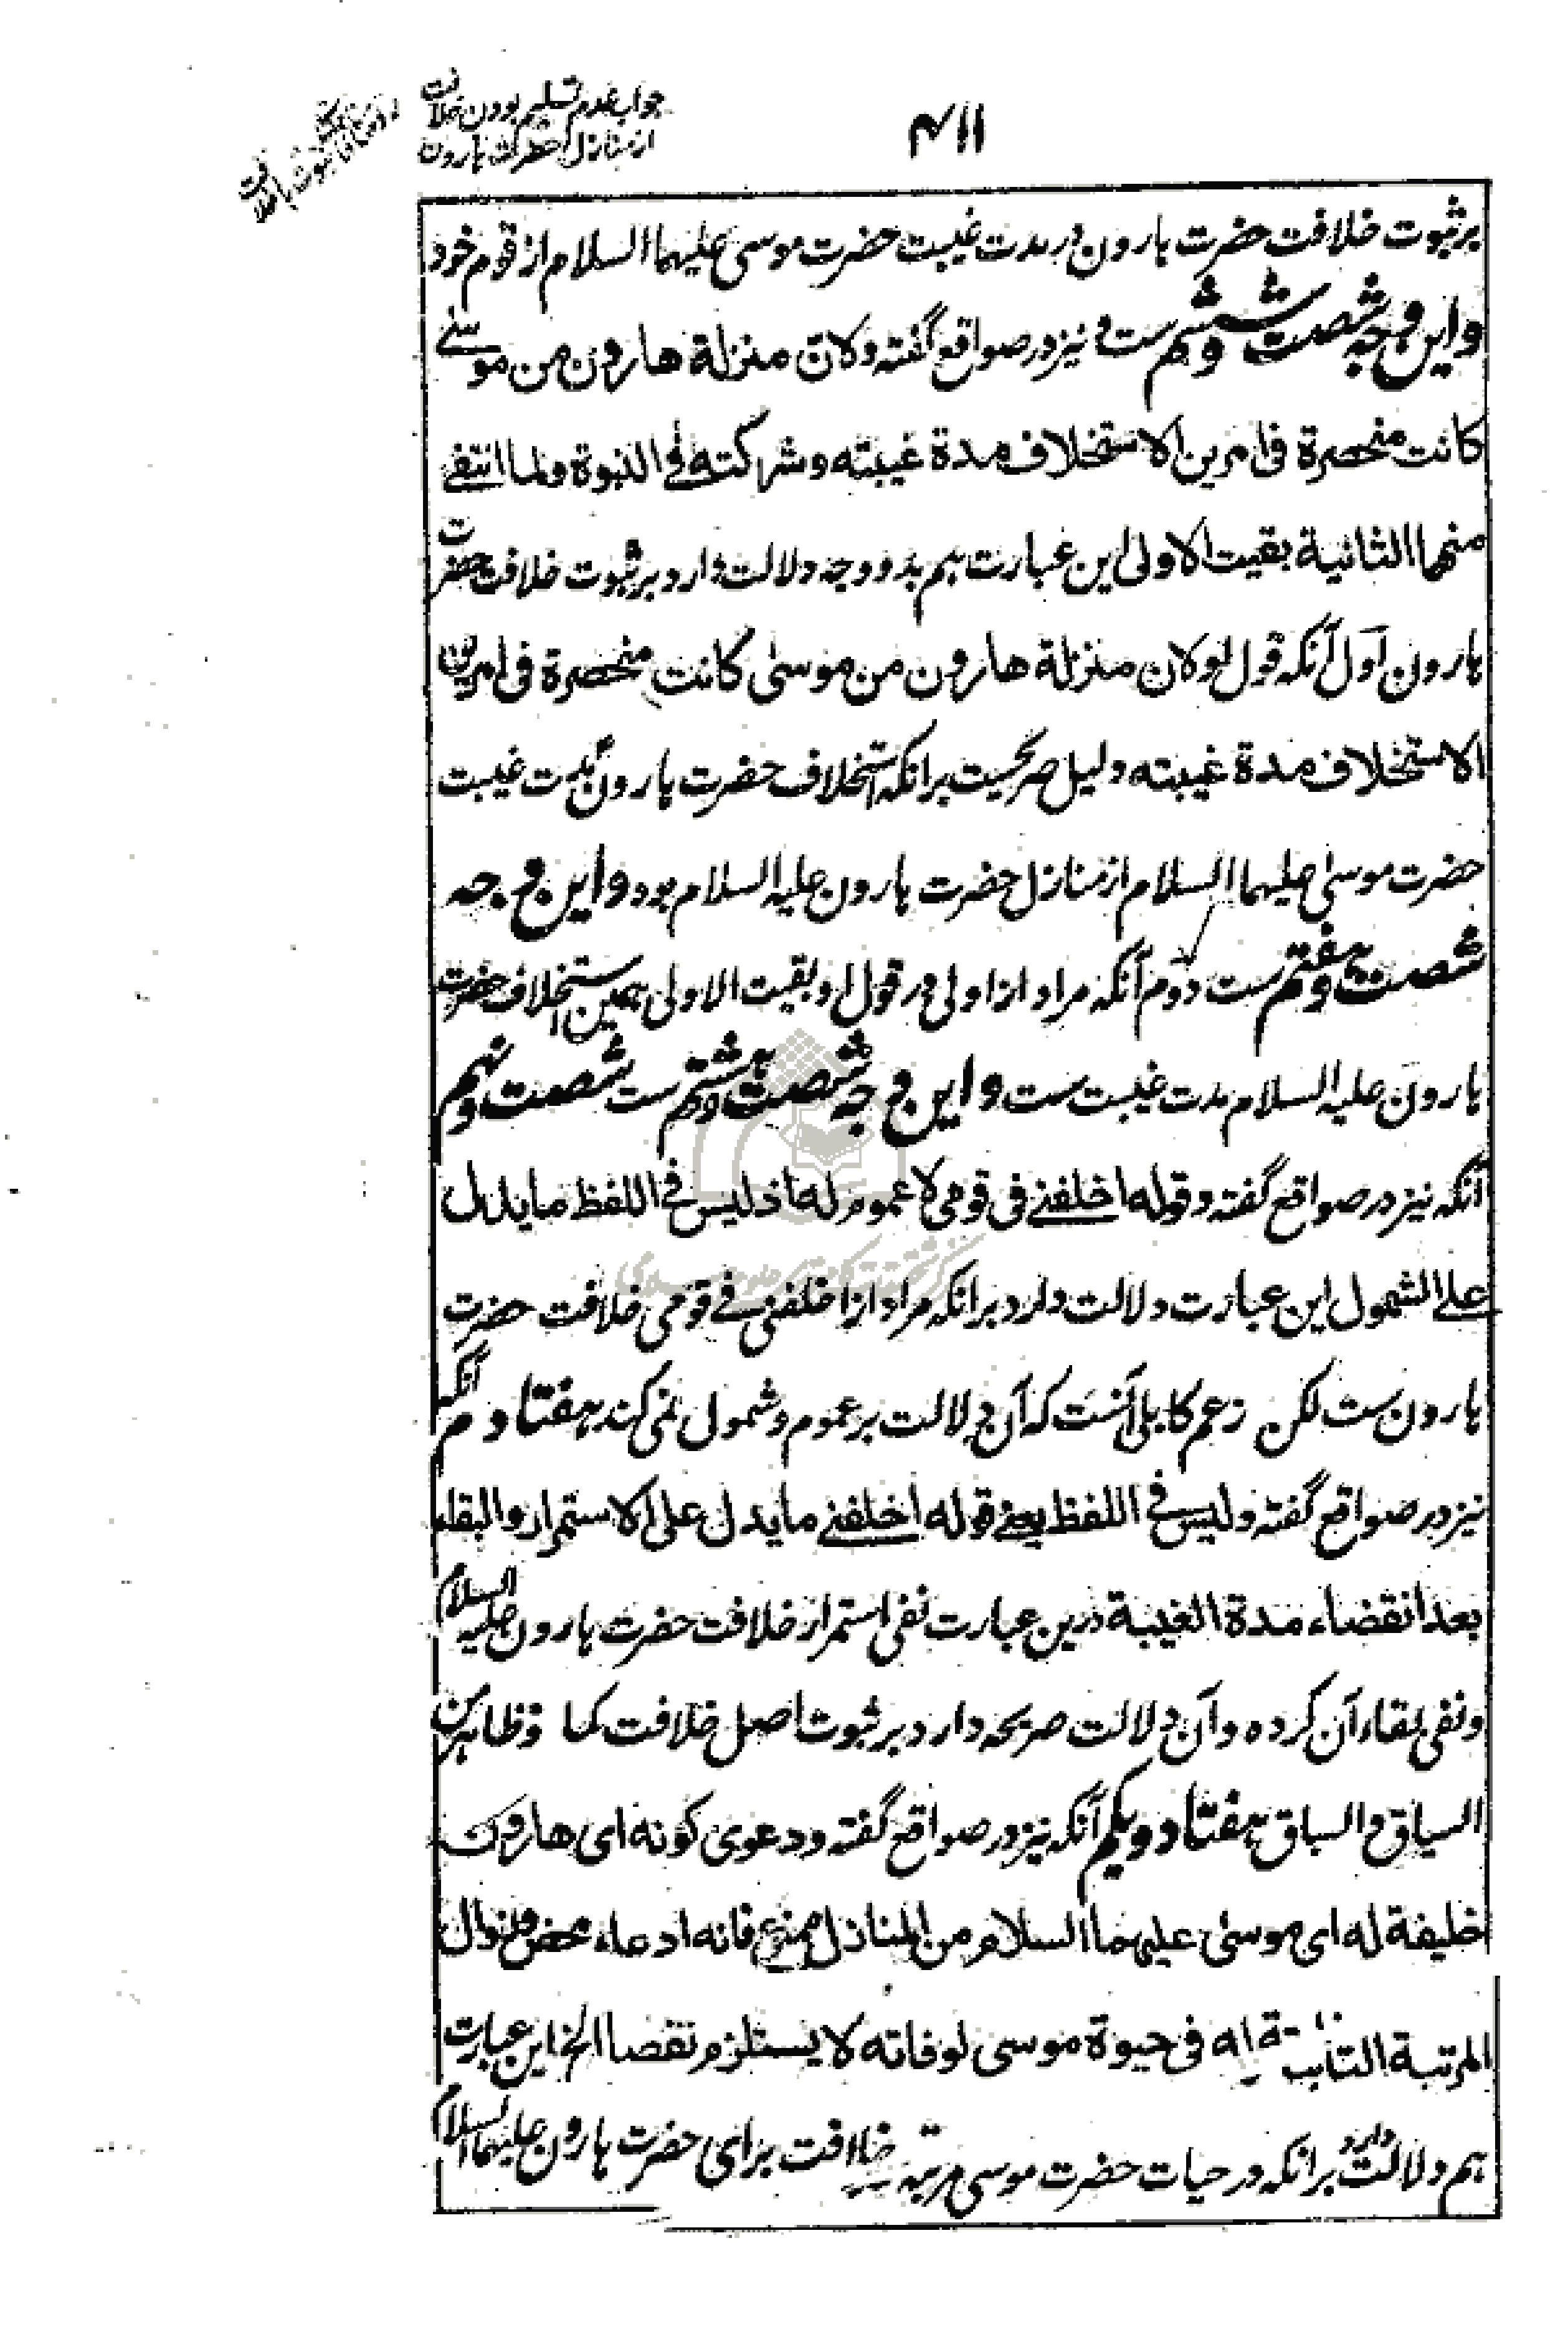 ۴۱۱
جواب عدم تسلیم بودن خلافت
از منازل حضرت هارون
بر ثبوت خلافت حضرت هارون در مدت غیبت حضرت موسی علیهما السلام از قوم خود
و این وجه شصت و ششم ست و نیز در صواقع گفته ولان منزلة هارون من موسی
کانت منحصرة فی امرین الاستخلاف مدة غیبته وشرکته فی النبوة ولما انتفی
منهما الثانیة بقیت الاولی این عبارت هم بدو وجه دلالت دارد بر ثبوت خلافت حضرت
هارون اول آنکه قول او لان منزلة هارون من موسی کانت منحصرة فی امرین
الاستخلاف مدة غیبته دلیل صریحیست برانکه استخلاف حضرت هارون بمدت غیبت
حضرت موسی علیهما السلام از منازل حضرت هارون علیه السلام بود و این وجه
شصت و هفتم ست دوم آنکه مراد از اولی در قول او بقیت الاولی همین استخلاف حضرت
هارون علیه السلام مدت غیبت ست و این وجه شصت و هشتم ست شصت و نهم
آنکه نیز در صواقع گفته وقوله اخلفنی فی قومی لا عموم له اذ لیس فی اللفظ ما یدل
علی الشمول این عبارت دلالت دارد برانکه مراد از اخلفنی فی قومی خلافت حضرت
هارون ست لکن زعم کابلی آنست که آن دلالت بر عموم و شمول نمی کند هفتادم آنکه
نیز در صواقع گفته ولیس فی اللفظ یعنی قوله اخلفنی ما یدل علی الاستمرار والبقاء
بعد انقضاء مدة الغیبة درین عبارت نفی استمرار خلافت حضرت هارون علیه السلام
و نفی بقاء آن کرده و آن دلالت صریحه دارد بر ثبوت اصل خلافت کما هو ظاهر من
السیاق والسباق هفتاد و یکم آنکه نیز در صواقع گفته ودعوی کونه ای هارون
خلیفة له ای موسی علیهما السلام من المنازل ممنوع فانه ادعاء محض وزوال
المرتبة الثابتة له فی حیوة موسی لوفاته لا یستلزم نقصا الخ این عبارت
هم دلالت دارد برانکه در حیات حضرت موسی مرتبه خلافت برای حضرت هارون علیهما السلام